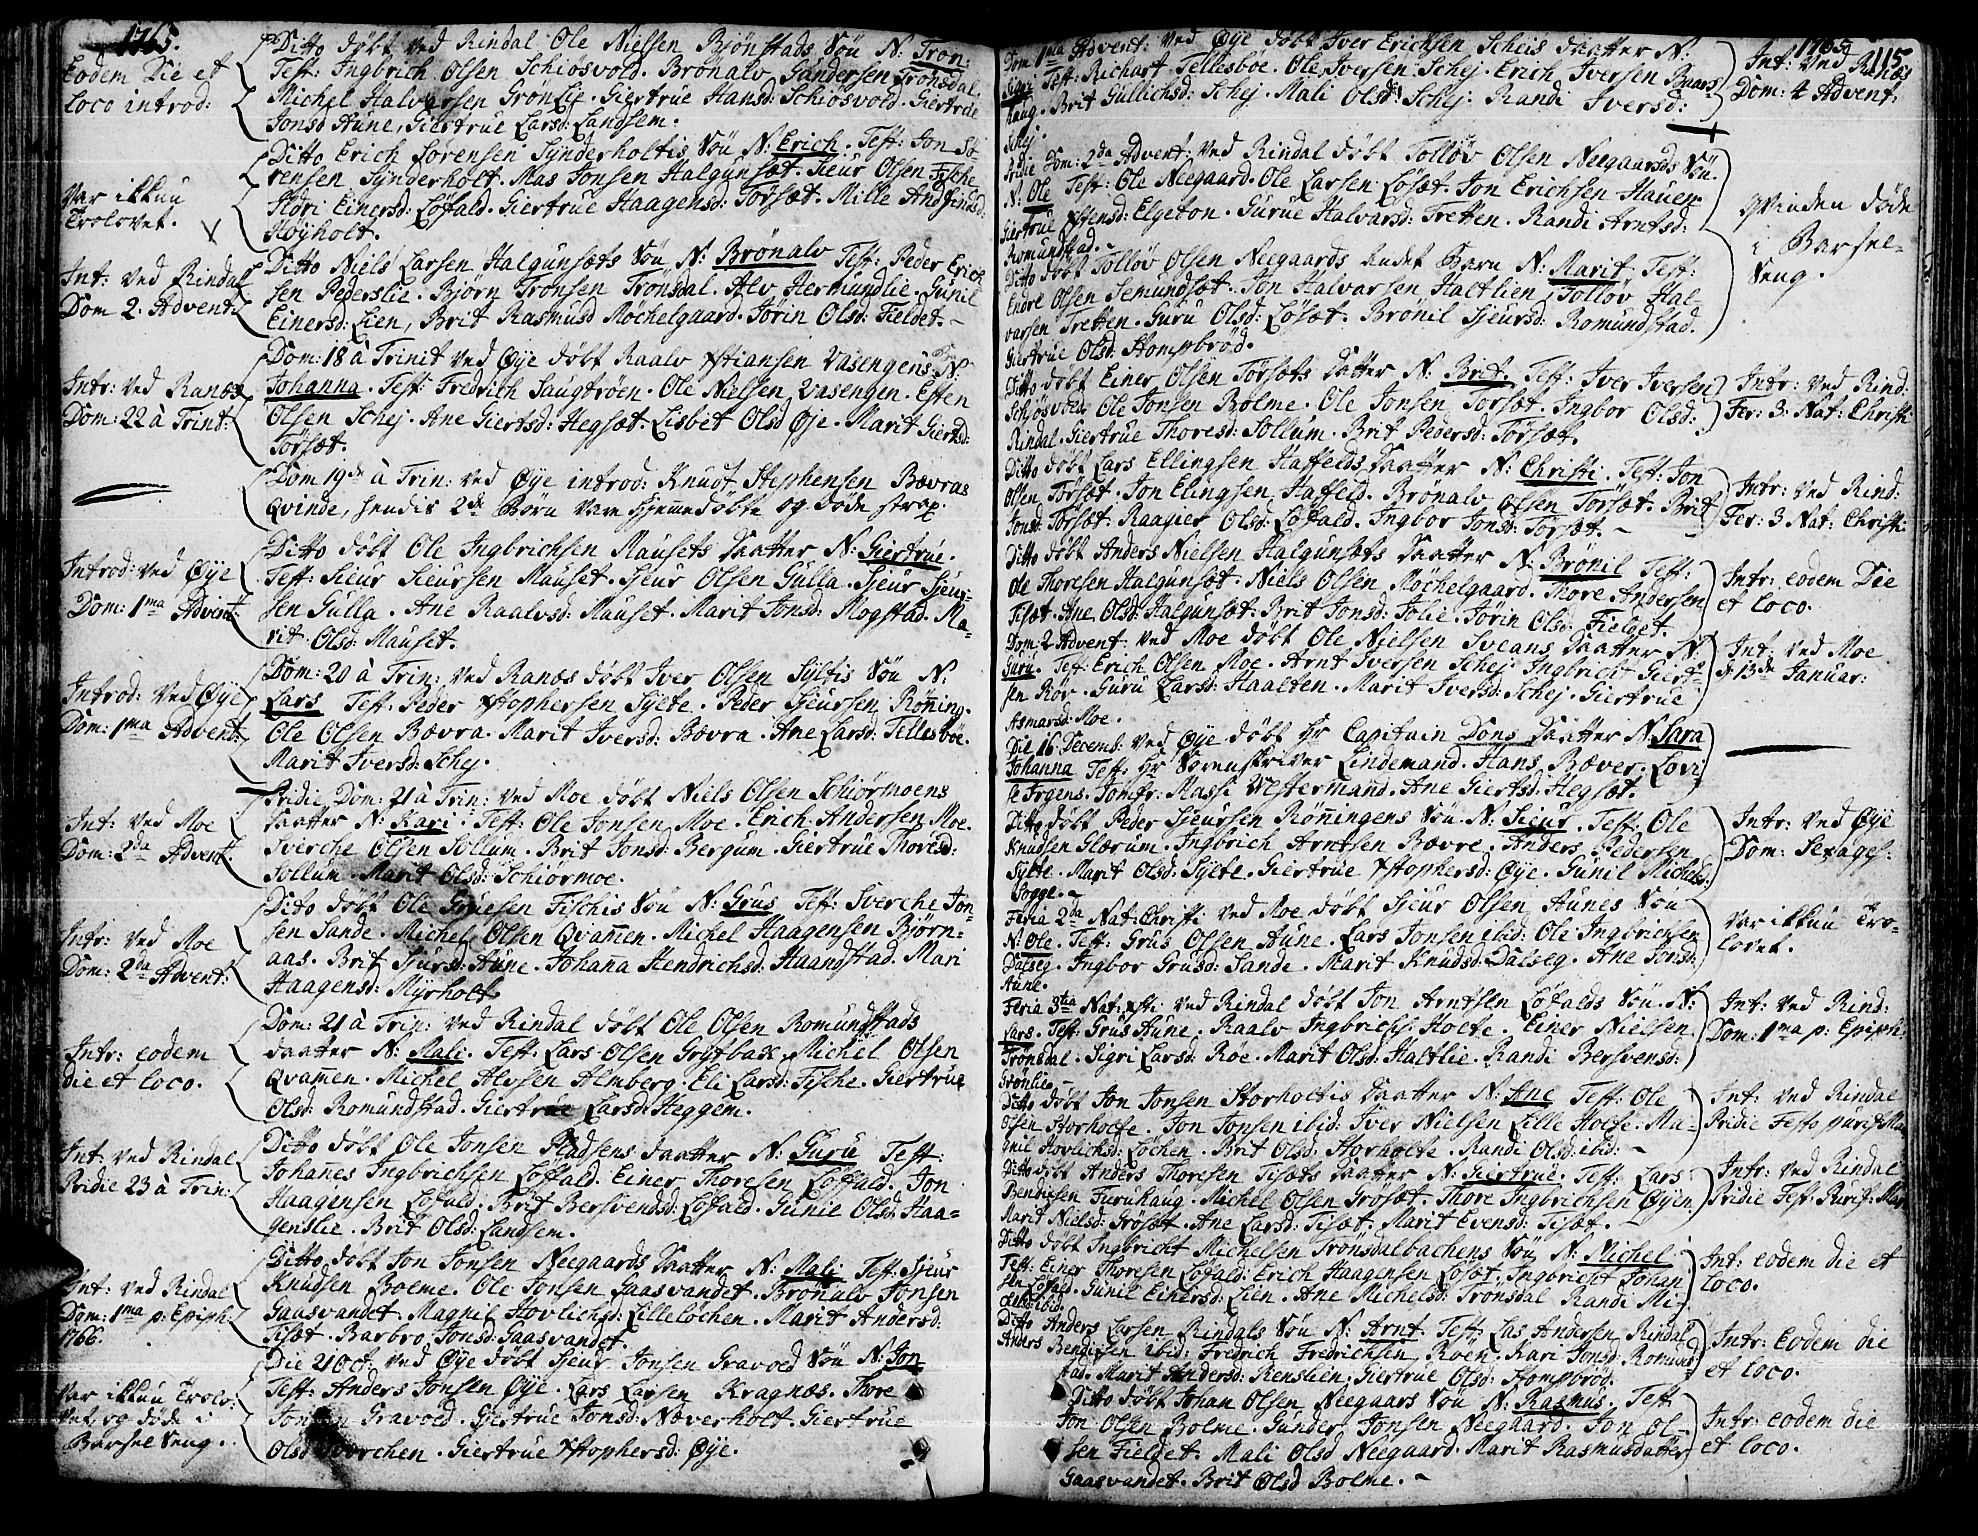 1765.
Eodem Die et
Loco introd:
Ditto døbt ved Rindal Ole Nielsen Bjönstads Sön N: Tron.
Test: Ingbrich Olsen Schiösvold. Brönalv Gundersen Tronsdal.
Michel Halvarsen GronLie. Giertrüe Hansd: Schiösvold. Giertrüe
Jonsd Aüne, Giertrüe Larsd: Landsem.
Var ikkün
Trolovet.
Ditto Erich Sørensen Synderholtis Sön N: Erich. Test: Jon Sö-
rensen Synderholt. Mas Jonsen Halgunsæt. Sieur Olsen Fische
Kari Einersd: Löfald. Giertrüe Haagensd: Torsæt. Mille Andfinsd:
Høyholt.
Int: ved Rindal
Dom 2. Advent:
Ditto Niels Larsen Halgunsæts Sön N: Brönalv Test: Peder Erich
sen Pederslie. Bjorn Tronsen Trönsdal. Alv Hermundlie. Gunil
Einersd: Lien, Brit Rasmusd Möchelgaard. Jörin Olsd: Fieldet.
Intr: ved Ranæs
Dom: 22 à Trint:
Dom: 18 à Trinit ved Øye døbt Raalv Xstiansen Vasengens N:
Johanna. Test: Fredrich Saugtröen. Ole Nielsen Vasengen. Esten
Olsen Schej. Ane Giertsd: Hegsæt. Lisbet Olsd Øje. Marit Giertsd:
Torsæt.
Dom 19de à Trin: ved Øye introd: Knudt Stephensen Bævras
Qvinde, hendis 2de Börn vare hjemmedøbte og døde strax.
Introd: ved Øye
Dom: 1ma Advent
Ditto døbt Ole Ingbrichsen Mausets Daatter N: Giertrüe.
Test: Sieur Sieursen Mauset. Sjeur Olsen Gülla. Sjeur Sjeur-
sen Gülla. Ane Raalvsd: Mauset. Marit Jonsd: Mogstad. Ma-
rit Olsd: Mauset.
Introd: ved Øye
Dom: 1ma Advent:
Dom: 20 à Trin: ved Ranæs døbt Iver Olsen Sÿltis Sön N:
Lars Test. Peder Xstophersen Sylte. Peder Sjeursen Röning.
Ole Olsen Bævra. Marit Iversd: Bævra. Ane Larsd: Tellesböe.
Marit Iversd: Schej.
Int: ved Moe
Dom: 2da Advent:
Pridie Dom: 21 à Trin: ved Moe døbt Niels Olsen Schiörmoens
Daatter N: Kari. Test: Ole Jonsen Moe. Erich Andersen Moe.
Sverche Olsen Sollum. Brit Jonsd: Bergum. Giertrüe Thoresd:
Sollüm. Marit Olsd: Schiormoe.
Intr: ved Moe
Dom: 2da Advent:
Ditto døbt Ole Grüesen Fischis Sön N: Grus Test: Sverche Jon-
sen Sande. Michel Olsen Qvammen. Michel Haagensen Björn-
aas. Brit Sjursd: Aüne. Johanna Hendrichsd: Haandstad. Mari
Haagensd: Mÿrholt.
Intr: eodem
die et loco.
Dom: 21 à Trin: ved Rindal døbt Ole Olsen Romundstads
Daatter N: Mali. Test: Lars Olsen Grytbak. Michel Olsen
Qvammen. Michel Alvsen Almberg. Eli Larsd: Fische. Giertrue
Olsd: Romundstad. Giertrüe Larsd: Heggem.
Int: ved Rindal
Pridie 23 à Trin:
Ditto døbt Ole Jonsen Pladsens Daatter N: Gurü Test:
Johannes Ingbrichsen Löffald. Einer Thoresen Löffald. Jon
Haagensen Löffald. Brit Bersvendsd: Löffald. Gunil Olsd: Haa-
genslie. Brit Olsd: Landsem.
Int: ved Rindal
Dom: 1ma p: Epiph:
1766.
Ditto døbt Jon Jonsen Neegaards Daatter N: Mali. Test: Sjeur
Knudsen Bolme. Ole Jonsen Gaasvandet. Brönalv Jonsen
Gaasvandet. Magnil Hovlichsd: Lilleløchen. Marit Andersd:
Tisæt. Barbro Jonsd: Gaasvandet.
Var ikkun Trolo-
vet, og døde i
Barsel Seng.
Die 21 Oct: ved Øye døbt Sjeur Jonsen Gravoed Sön N: Jon
Test: Anders Jonsen Øye. Lars Larsen Kragnæs. Thore
Jonsen Gravoed. Giertrüe Jonsd: Næverholt. Giertrüe
Olsd Qvorchen. Giertrüe Xstophersd: Øye.
1765.
115
Dom 1ma Advent: ved Øye døbt Iver Erichsen Scheis Daatter N:
Sigri Test: Richart Tellesboe. Ole Iversen Schej. Erich Iversen Baars-
haug. Brit Gullichsd: Schej. Mali Olsd: Schej. Randi Iversd:
Schej.
Int: ved Ranæs
Dom: 4 Advent:
Pridie Dom: 2da Advent: ved Rindal døbt Tolløv Olsen Neegaards Sön
N: Ole Test: Ole Neegaard. Ole Larsen Lösæt. Jon Erichsen Hauen.
Giertrue Xstensd: Elgeton. Gurue Halvarsd: Tretten. Randi Arntsd:
Romundstad.
Qvinden døde
i Barsel-
Seng.
Ditto døbt Tolløv Olsen Neegaards andet Barn N: Marit. Test:
Endre Olsen Semundsæt. Jon Halvarsen Haltlien. Tolløv Hal-
varsen Tretten. Guru Olsd: Lösæt. Brönil Sjeursd: Romundstad.
Giertrüe Olsd: Stompbröd.
Ditto døbt Einer Olsen Torsæts Datter N: Brit. Test: Iver Iversen
Schjösvold. Ole Jonsen Bolme. Ole Jonsen Torsæt. Ingbor Olsd:
Rindal. Giertrüe Thoresd: Sollum. Brit Pedersd: Torsæt.
Intr: ved Rind:
Fer: 3: Nat: Christi
Ditto døbt Lars Ellingsen Haffelds Daatter N: Christi. Test: Jon
Olsen Torsæt. Jon Elingsen Haffeld. Brönalv Olsen Torsæt. Brit
Jonsd: Torsæt. Raagier Olsd: Löffald. Ingbor Jonsd: Torsæt.
Intr: ved Rind:
Fer: 3 Nat: Christi:
Ditto døbt Anders Nielsen Halgunsæts Daatter N: Brönil Test:
Ole Thoresen Halgunsæt. Niels Olsen Möchelgaard. Thore Andersen
Tisæt. Ane Olsd: Halgunsæt. Brit Jonsd: Jolie. Jörin Olsd: Fieldet.
Intr: eodem Die
et loco.
Dom. 2 Advent: ved Moe døbt Ole Nielsen Sveans Daatter N:
Gurü. Test: Erich Olsen Moe. Arnt Iversen Schej. Ingbricht Giert-
sen Rör. Gurü Larsd: Haalten. Marit Iversd: Schej. Giertrüe
Asmarsd: Moe.
Int: ved Moe
d 13de Januar:
Die 16 Decemb: ved Øye døbt Hr Capitain Dons Daatter N: Sara
Johanna Test: Hr Sorenskriver Lindemand. Hans Bæver. Lovi-
se Irgens. Jomfr: Massi Vestermand. Ane Giertsd: Hegsæt.
Ditto døbt Peder Sjeursen Röningens Sön N: Sieur. Test: Ole
Knudsen Glærum. Ingbrich Arntsen Bævre. Anders Pedersen
Sylte. Marit Olsd: Sylte. Giertrüe Xstophersd: Øye. Günil Michelsd:
Bogge.
Intr: ved Øye
Dom: Sexages:
Feria 2da Nat: Christi ved Moe døbt Sjeur Olsen Aünes Sön
N: Ole. Test: Grus Olsen Aüne. Lars Jonsen ibid: Ole Ingbrichsen
Dalseg. Ingbor Grusd: Sande. Marit Knudsd: Dalseg. Ane Jonsd:
Aüne.
Var ikkün Tro-
lovet.
Feria 3tia Nat: Xsti: ved Rindal døbt Jon Arntsen Löfalds Sön N:
Lars. Test: Grus Aüne. Raalv Ingbrichs: Holte. Einer Nielsen
Tronsdal. Sigri Larsd: Røe. Marit Olsd: Haltlie. Randi Bersvensd:
Grönlien.
Int: ved Rind:
Dom: 1ma p: Epiph:
Ditto døbt Jon Jonsen Storholtis Daatter N: Ane Test: Ole
Olsen Storholte. Jon Jonsen ibid: Iver Nielsen Lille Holte. Ma-
gnil Hovlichsd: Löchen. Brit Olsd: Storholte. Randi Olsd: ibid:
Int: ved Rindal
Pridie Festo purif: Mar
Ditto døbt Anders Thoresen Tisæts Daatter N: Giertrüe. Test: Lars
Bendtsen Furuhaug. Michel Olsen Grosæt. Thore Ingbrichsen Øyen
Marit Nielsd: Grösæt. Ane Larsd: Tisæt. Marit Evensd: Tisæt.
Intr: ved Rindal
Pridie Fest: Purif: Mar:
Ditto døbt Ingbricht Michelsen Trönsdalbachens Sön N: Michel
Test: Einer Thoresen Löfald: Erich Haagensen Lösæt. Ingbricht Johan
sen Löfald. Gunil Einersd: Lien. Ane Michelsd: Tronsdal Randi Mi-
chelsd: ibid:
Int: eodem die et
loco.
Ditto Anders Larsen Rindals Sön N: Arnt. Test: Las Andersen Rindal
Anders Bendtsen ibid: Fredrich Fredrichsen Röen. Kari Jonsd: Romund-
stad. Marit Andersd: Renslien. Giertrue Olsd: Stompbröd.
Intr: Eodem die
et loco.
Ditto døbt Johan Olsen Neegaars Sön N: Rasmus. Test
Jon Olsen Bolme. Gunder Jonsen Neegaard. Jon Ol-
sen Fieldet. Mali Olsd Neegaard. Marit Rasmusdatter
Gaasvandet. Brit Olsd Bolme.
Intr: eodem die
et loco.